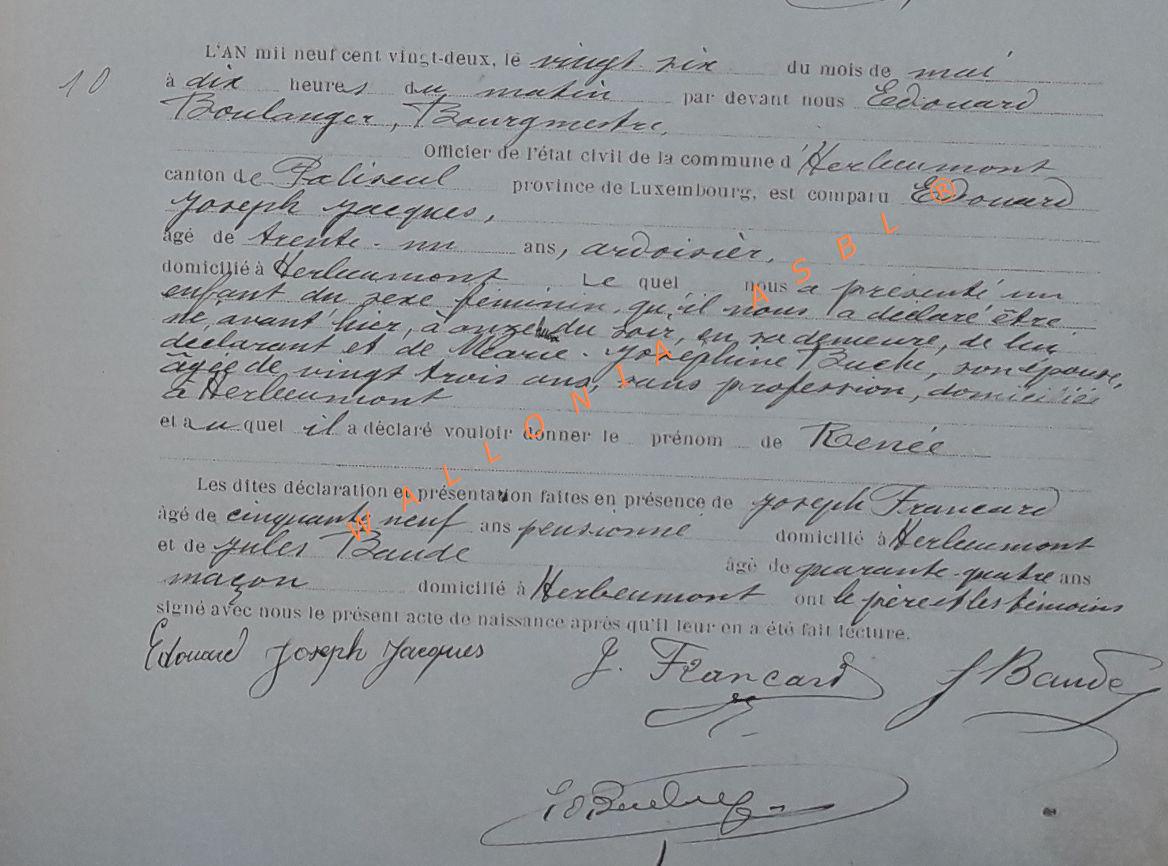 10
L'AN mil neuf cent vingt-deux, le vingt six du mois de mai
à dix heures du matin par devant nous Edouard
Boulanger, Bourgmestre,
Officier de l'état civil de la commune d'Herbeumont
canton de Paliseul province de Luxembourg, est comparu Edouard
Joseph Jacques,
âgé de trente-un ans, ardoisier,
domicilié à Herbeumont Le quel nous a présenté un
enfant du sexe féminin, qu'il nous a déclaré être
né, avant hier, à onze du soir, en sa demeure, de lui
déclarant et de Marie-Joséphine Buchi, son épouse,
âgée de vingt trois ans, sans profession, domiciliés
à Herbeumont
et auquel il a déclaré vouloir donner le prénom de Renée
Les dites déclaration et présentation faites en présence de Joseph Francard
âgé de cinquante neuf ans pensionné domicilié à Herbeumont
et de Jules Baude âgé de quarante-quatre ans
maçon domicilié à Herbeumont ont le père et les témoins
signé avec nous le présent acte de naissance après qu'il leur en a été fait lecture.
Edouard Joseph Jacques J. Francard J Baude
WALLONIA ASBL ®